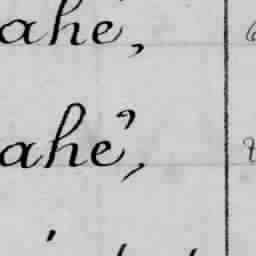 ahe,
ahe’,